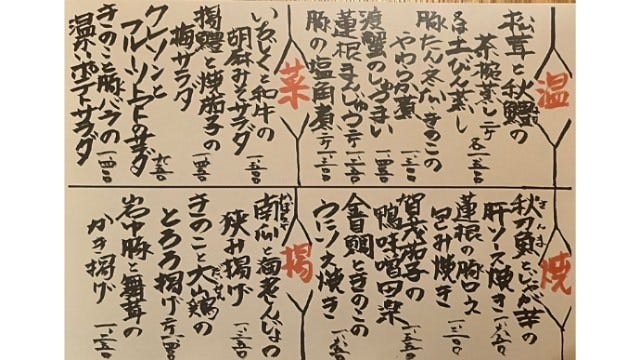 温
松茸と秋鱧の
茶碗蒸し二ケ
又は土びん蒸し
各一、二五〇
豚たん冬瓜きのこの
やわらか煮
一、三五〇
渡蟹のしゅうまい
一、二五〇
蓮根まんじゅう二ケ
一、一五〇
豚の塩角煮二ケ
一、二五〇
菜
いちじくと和牛の
胡麻みそサラダ
一、二五〇
揚鱧と焼茄子の
梅サラダ
一、二五〇
クレソンと
フルーツトマトのサラダ
九五〇
きのこと豚バラの
温ポテトサラダ
一、一四〇
焼
さんま
秋刀魚とじゃが芋の
肝ソース焼き
一、二五〇
蓮根の豚ロース
包み焼き
一、一五〇
賀茂茄子の
鴨味噌田楽
一、三五〇
金目鯛ときのこの
ウニソース焼き
揚
かぼちゃ
南瓜と海老しんじょの
狭み揚げ
一、二五〇
きのこと大山鶏の
とろろ揚げ二ケ
岩中豚と舞茸の
かき揚げ
一、二五〇